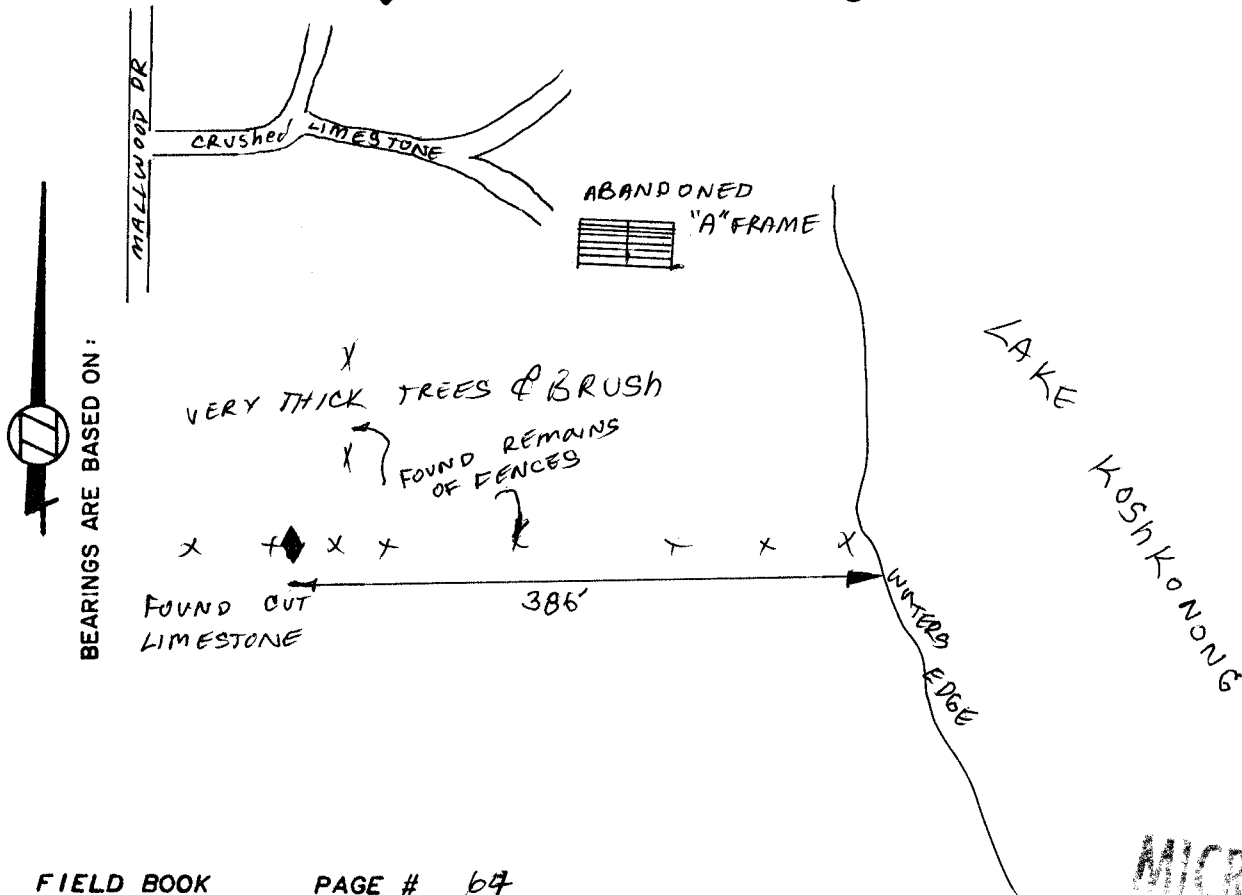 MALLWOOD DR
CRUSHED LIMESTONE
ABANDONED
"A" FRAME
BEARINGS ARE BASED ON:
VERY THICK TREES & BRUSH
FOUND REMAINS
OF FENCES
LAKE KOSHKONONG
FOUND CUT
LIMESTONE
386'
WATERS EDGE
FIELD BOOK PAGE # 64